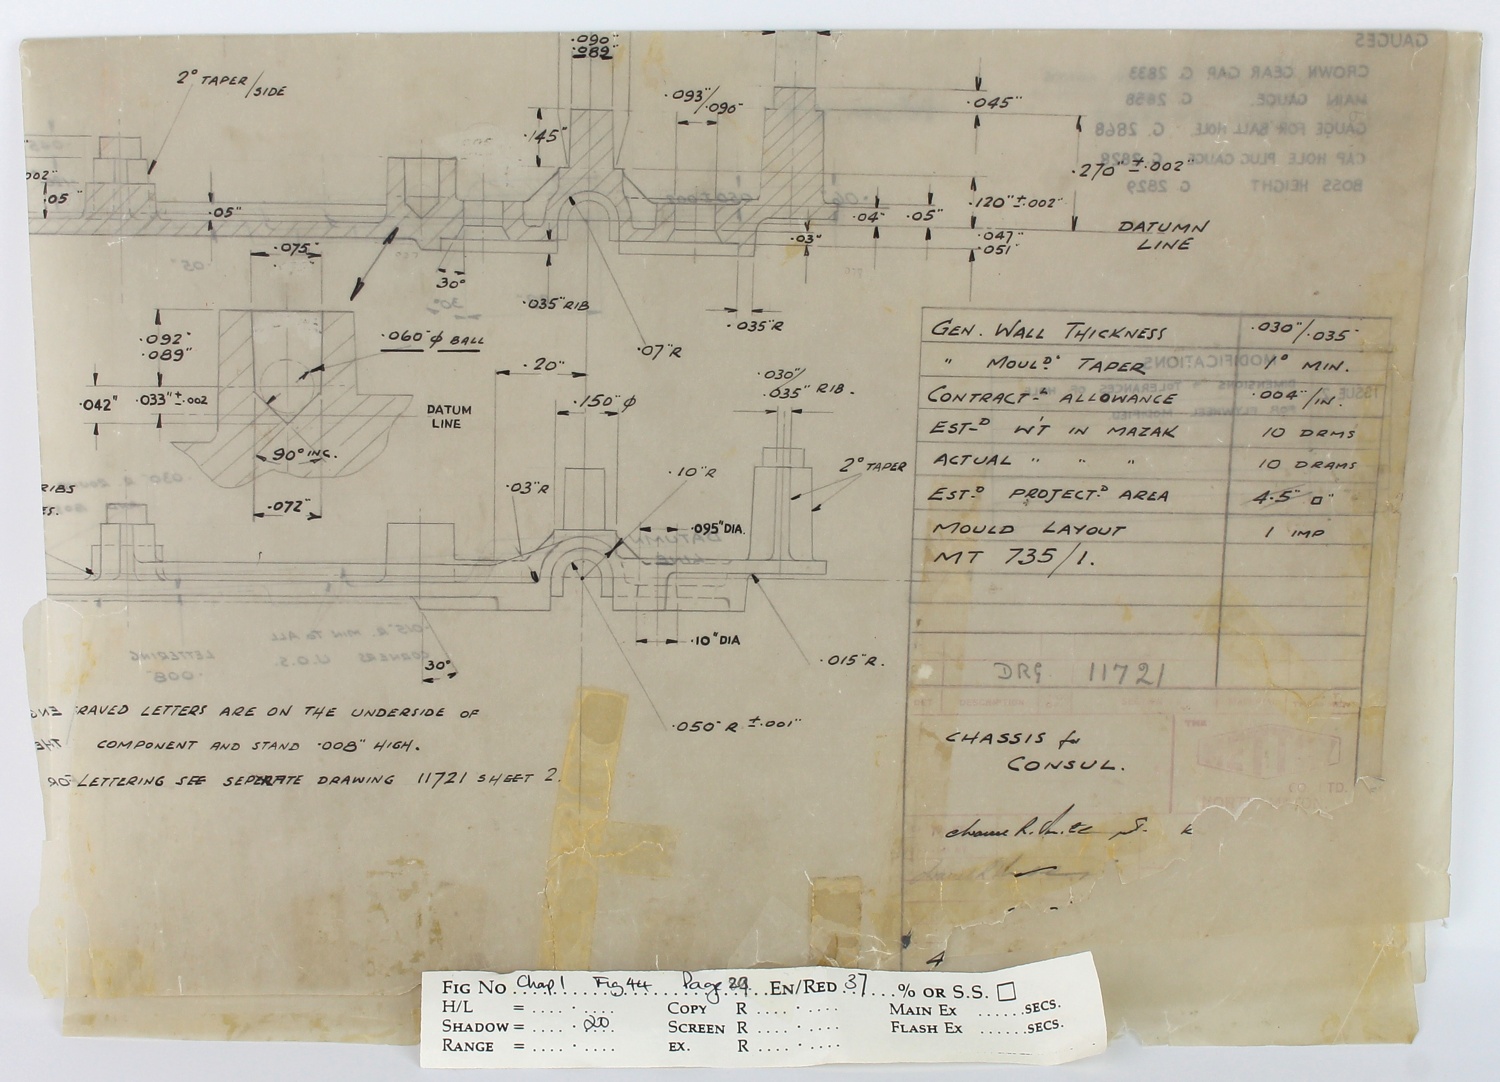 .090"
.089"
2° TAPER/SIDE
.093"/.090"
.045"
.145"
.270" ±.002"
.002"
.05"
.05"
.04"
.05"
.120" ±.002"
DATUMN
LINE
.03"
.047"
.051"
.075"
30°
.035" RIB
.035" R
.07" R
.092"
.089"
.060" φ BALL
.042"
.033" ±.002
DATUM
LINE
90° INC.
.072"
.20"
.150" φ
.030"/.035" RIB.
GEN. WALL THICKNESS .030"/.035"
" MOULD. TAPER 1° MIN.
CONTRACT-N ALLOWANCE .004"/IN.
EST-D WT IN MAZAK 10 DRMS
ACTUAL " " " 10 DRAMS
EST-D PROJECT-D AREA 4.5" □"
MOULD LAYOUT 1 IMP
MT 735/1.
DRG 11721
RIBS
ES.
.03" R
.10" R
2° TAPER
.095" DIA.
.10" DIA
.015" R.
30°
.050" R ±.001"
RAVED LETTERS ARE ON THE UNDERSIDE OF
COMPONENT AND STAND .008" HIGH.
LETTERING SEE SEPERATE DRAWING 11721 SHEET 2.
CHASSIS for
CONSUL.
4
GAUGES
CROWN GEAR GAP G 2833
MAIN GAUGE. G 2858
GAUGE FOR BALL HOLE G. 2868
CAP HOLE PLUG GAUGE G. 2828
BOSS HEIGHT G 2829
MODIFICATIONS
ISSUE 2 DIMENSIONS & TOLERANCES OF HOLE
FOR FLYWHEEL MODIFIED
DATUMN
LINE
.015" R. MIN TO ALL
CORNERS U.O.S.
LETTERING
.008"
FIG NO Chap 1 Fig 44 Page 29 EN/RED 37 % OR S.S. □
H/L = COPY R MAIN EX SECS.
SHADOW = 20 SCREEN R FLASH EX SECS.
RANGE = EX. R